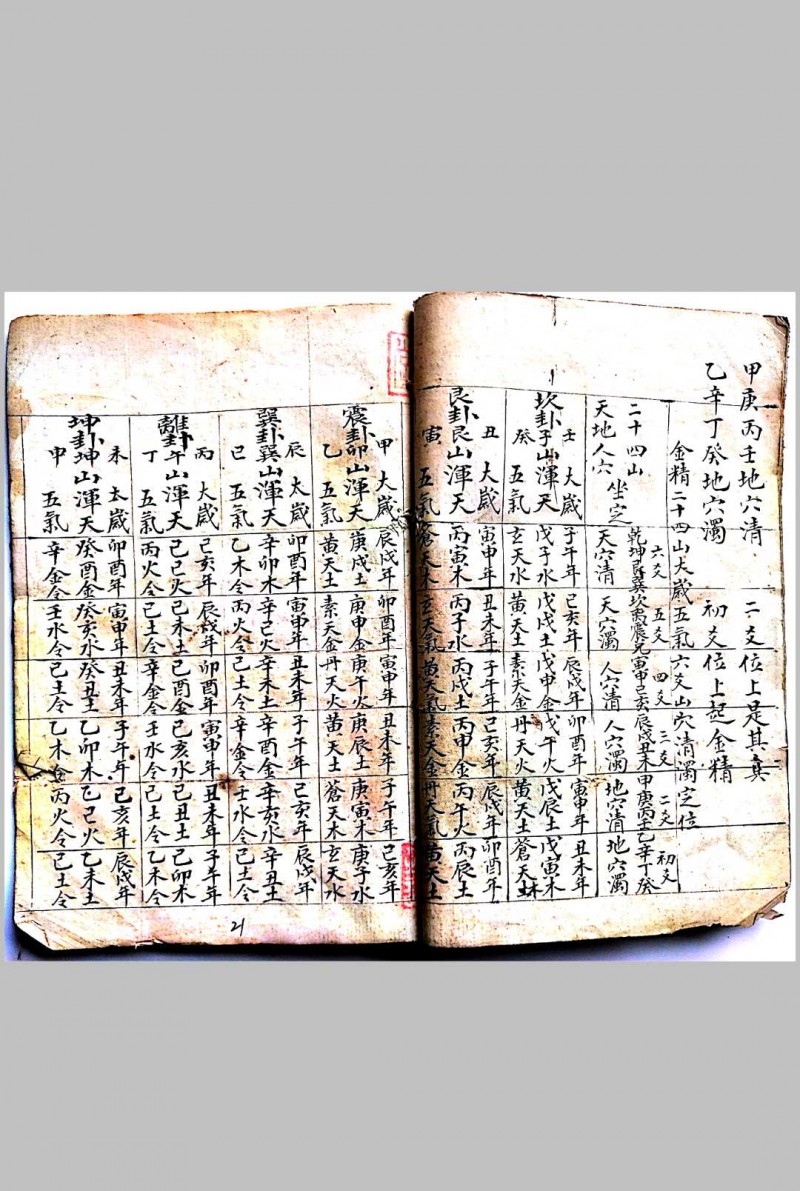 甲庚丙壬地穴清 二爻位上是其真
乙辛丁癸地穴濁 初爻位上起金精
金精二十四山大歲五氣六爻山穴清濁定位
六爻 五爻 四爻 三爻 二爻 初爻
二十四山 乾坤艮巽 坎离震兌 寅申巳亥 辰戌丑未 甲庚丙壬 乙辛丁癸
天地人穴 坐定 天穴清 天穴濁 人穴清 人穴濁 地穴清 地穴濁
壬 大歲 子午年 己亥年 辰戌年 卯酉年 寅申年 丑未年
坎卦子山渾天 戊子水 戊戌土 戊申金 戊午火 戊辰土 戊寅木
癸 五氣 玄天水 黃天土 素天金 丹天火 黃天土 蒼天木
丑 大歲 寅申年 丑未年 子午年 己亥年 辰戌年 卯酉年
艮卦艮山渾天 丙寅木 丙子水 丙戌土 丙申金 丙午火 丙辰土
寅 五氣 蒼天木 玄天氣 黃天氣 素天金 丹天氣 黃天土
甲 大歲 辰戌年 卯酉年 寅申年 丑未年 子午年 己亥年
震卦卯山渾天 庚戌土 庚申金 庚午火 庚辰土 庚寅木 庚子水
乙 五氣 黃天土 素天金 丹天火 黃天土 蒼天木 玄天水
辰 太歲 卯酉年 寅申年 丑未年 子午年 己亥年 辰戌年
巽卦巽山渾天 辛卯木 辛己火 辛未土 辛酉金 辛亥水 辛丑土
巳 五氣 乙木令 丙火令 己土令 辛金令 壬水令 己土令
丙 大歲 己亥年 辰戌年 卯酉年 寅申年 丑未年 子午年
離卦午山渾天 己己火 己未土 己酉金 己亥水 己丑土 己卯木
丁 五氣 丙火令 己土令 辛金令 壬水令 己土令 乙木令
未 太歲 卯酉年 寅申年 丑未年 子午年 己亥年 辰戌年
坤卦坤山渾天 癸酉金 癸亥水 癸丑土 乙卯木 乙己火 乙未土
申 五氣 辛金令 壬水令 己土令 乙木令 丙火令 己土令
21